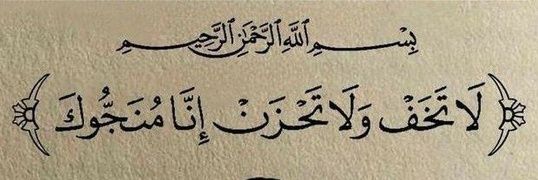 بِسْمِ اللَّهِ الرَّحْمَٰنِ الرَّحِيمِ
﴿لَا تَخَفْ وَلَا تَحْزَنْ إِنَّا مُنَجُّوكَ﴾